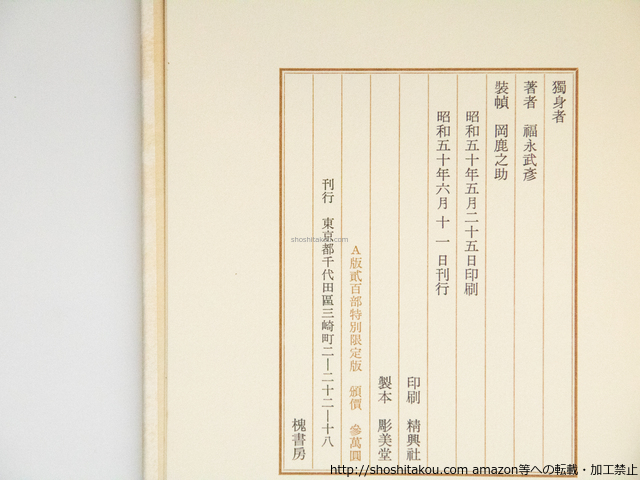 獨身者
著者 福永武彥
裝幀 岡鹿之助
昭和五十年五月二十五日印刷
昭和五十年六月十一日刊行
印刷 精興社
製本 彫美堂
A版貳百部特別限定版 頒價 參萬圓
刊行 東京都千代田區三崎町二—二十二—十八
槐書房
shoshitakou.com
http://shoshitakou.com amazon等への転載・加工禁止